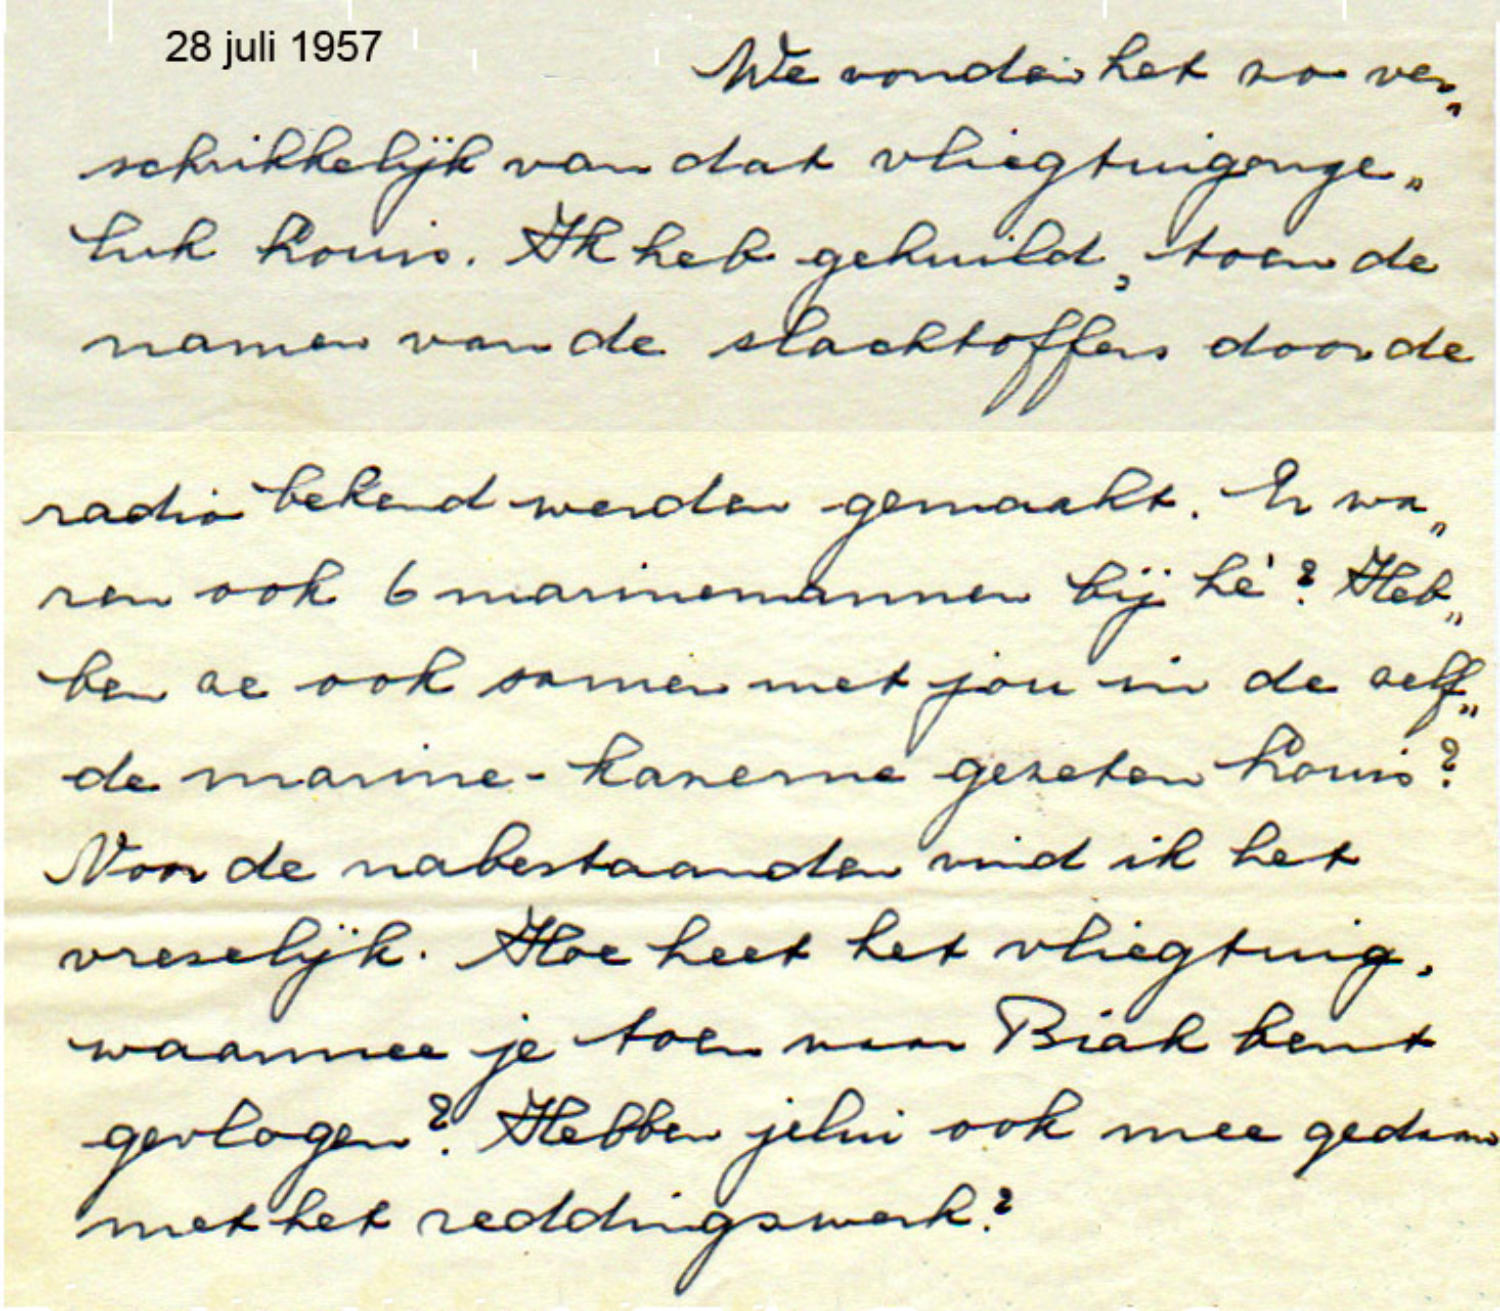 28 juli 1957
We vonden het zo ver„
schrikkelijk van dat vliegtuigonge„
luk Louis. Ik heb gehuild, toen de
namen van de slachtoffers door de
radio bekend werden gemaakt. Er wa„
ren ook 6 marinemannen bij hè? Heb„
ben ze ook samen met jou in de zelf„
de marine-kazerne gezeten Louis?
Voor de nabestaanden vind ik het
vreselijk. Hoe heet het vliegtuig,
waarmee je toen naar Biak bent
gevlogen? Hebben jelui ook mee gedaan
met het reddingswerk?